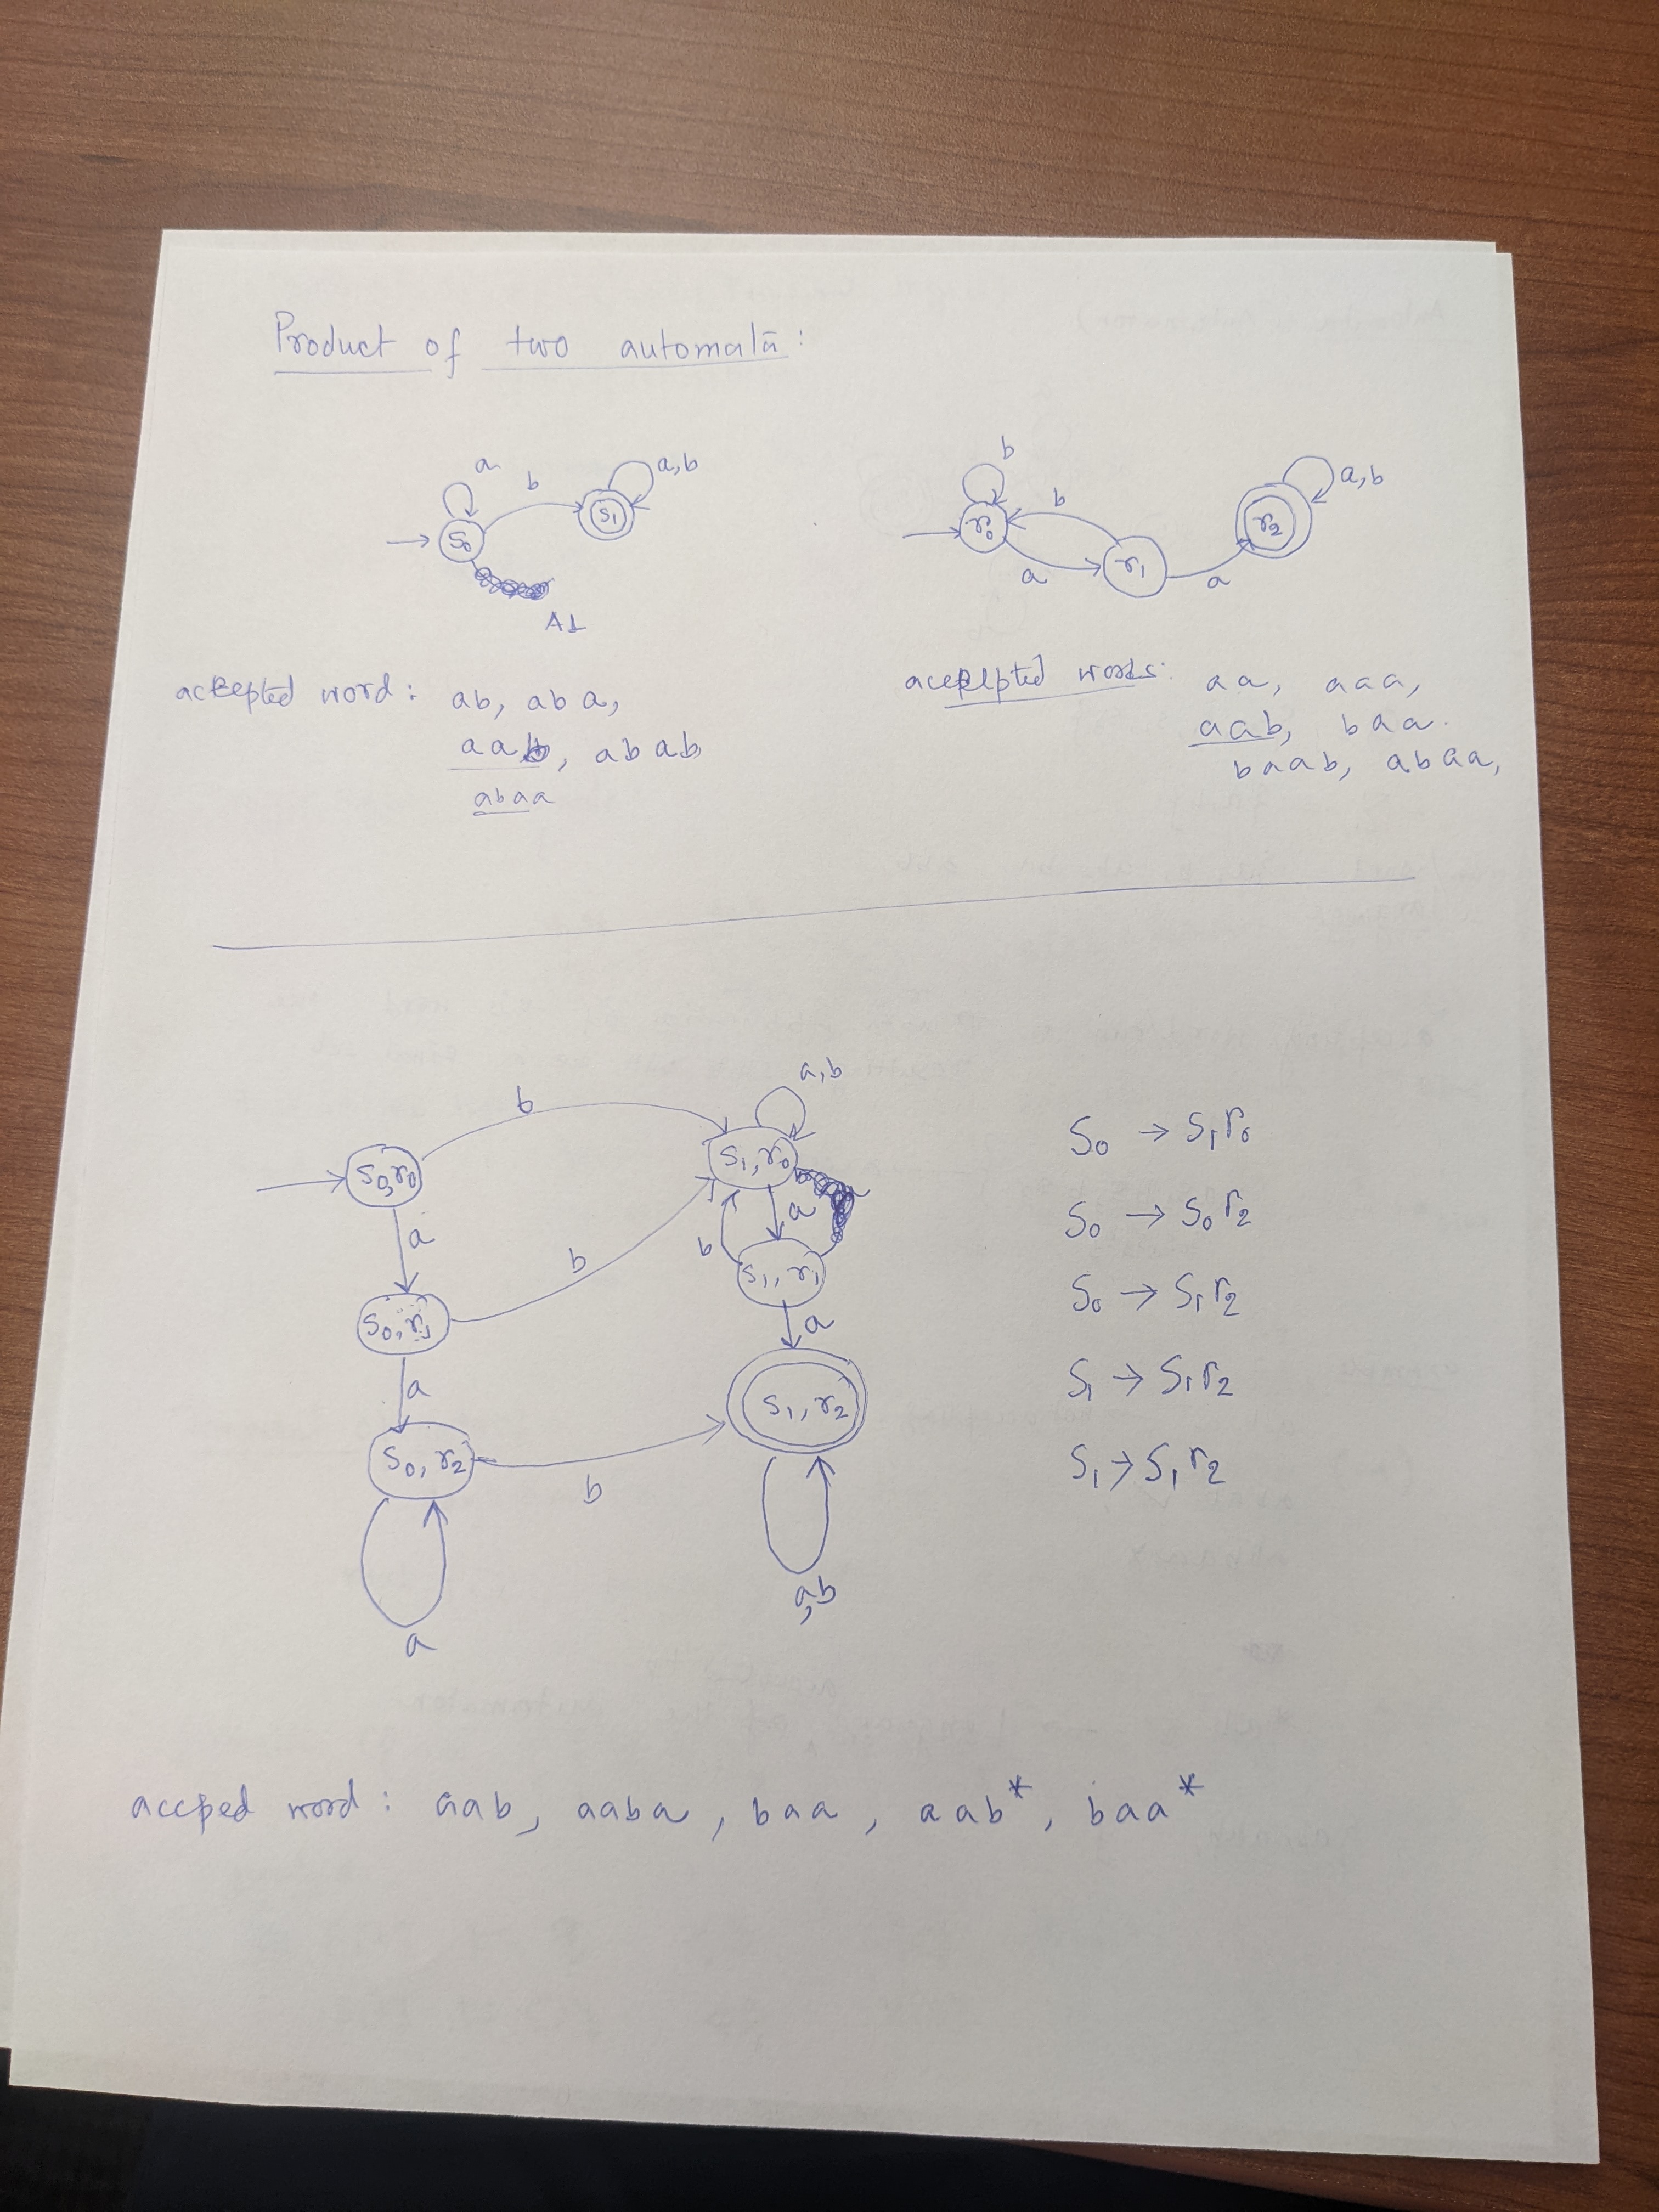 Product of two automata:
a
b
a,b
S0
S1
A1
b
b
a,b
r0
a
r1
a
r2
accepted word: ab, aba,
aab, abab
abaa
accepted words: aa, aaa,
aab, baa.
baab, abaa,
b
a,b
S0,r0
S1,r0
a
a
b
b
S0,r1
S1,r1
a
a
S0,r2
b
S1,r2
a
a,b
S0 → S1r0
S0 → S0r2
S0 → S1r2
S1 → S1r2
S1 → S1r2
accped word: aab, aaba, baa, aab*, baa*